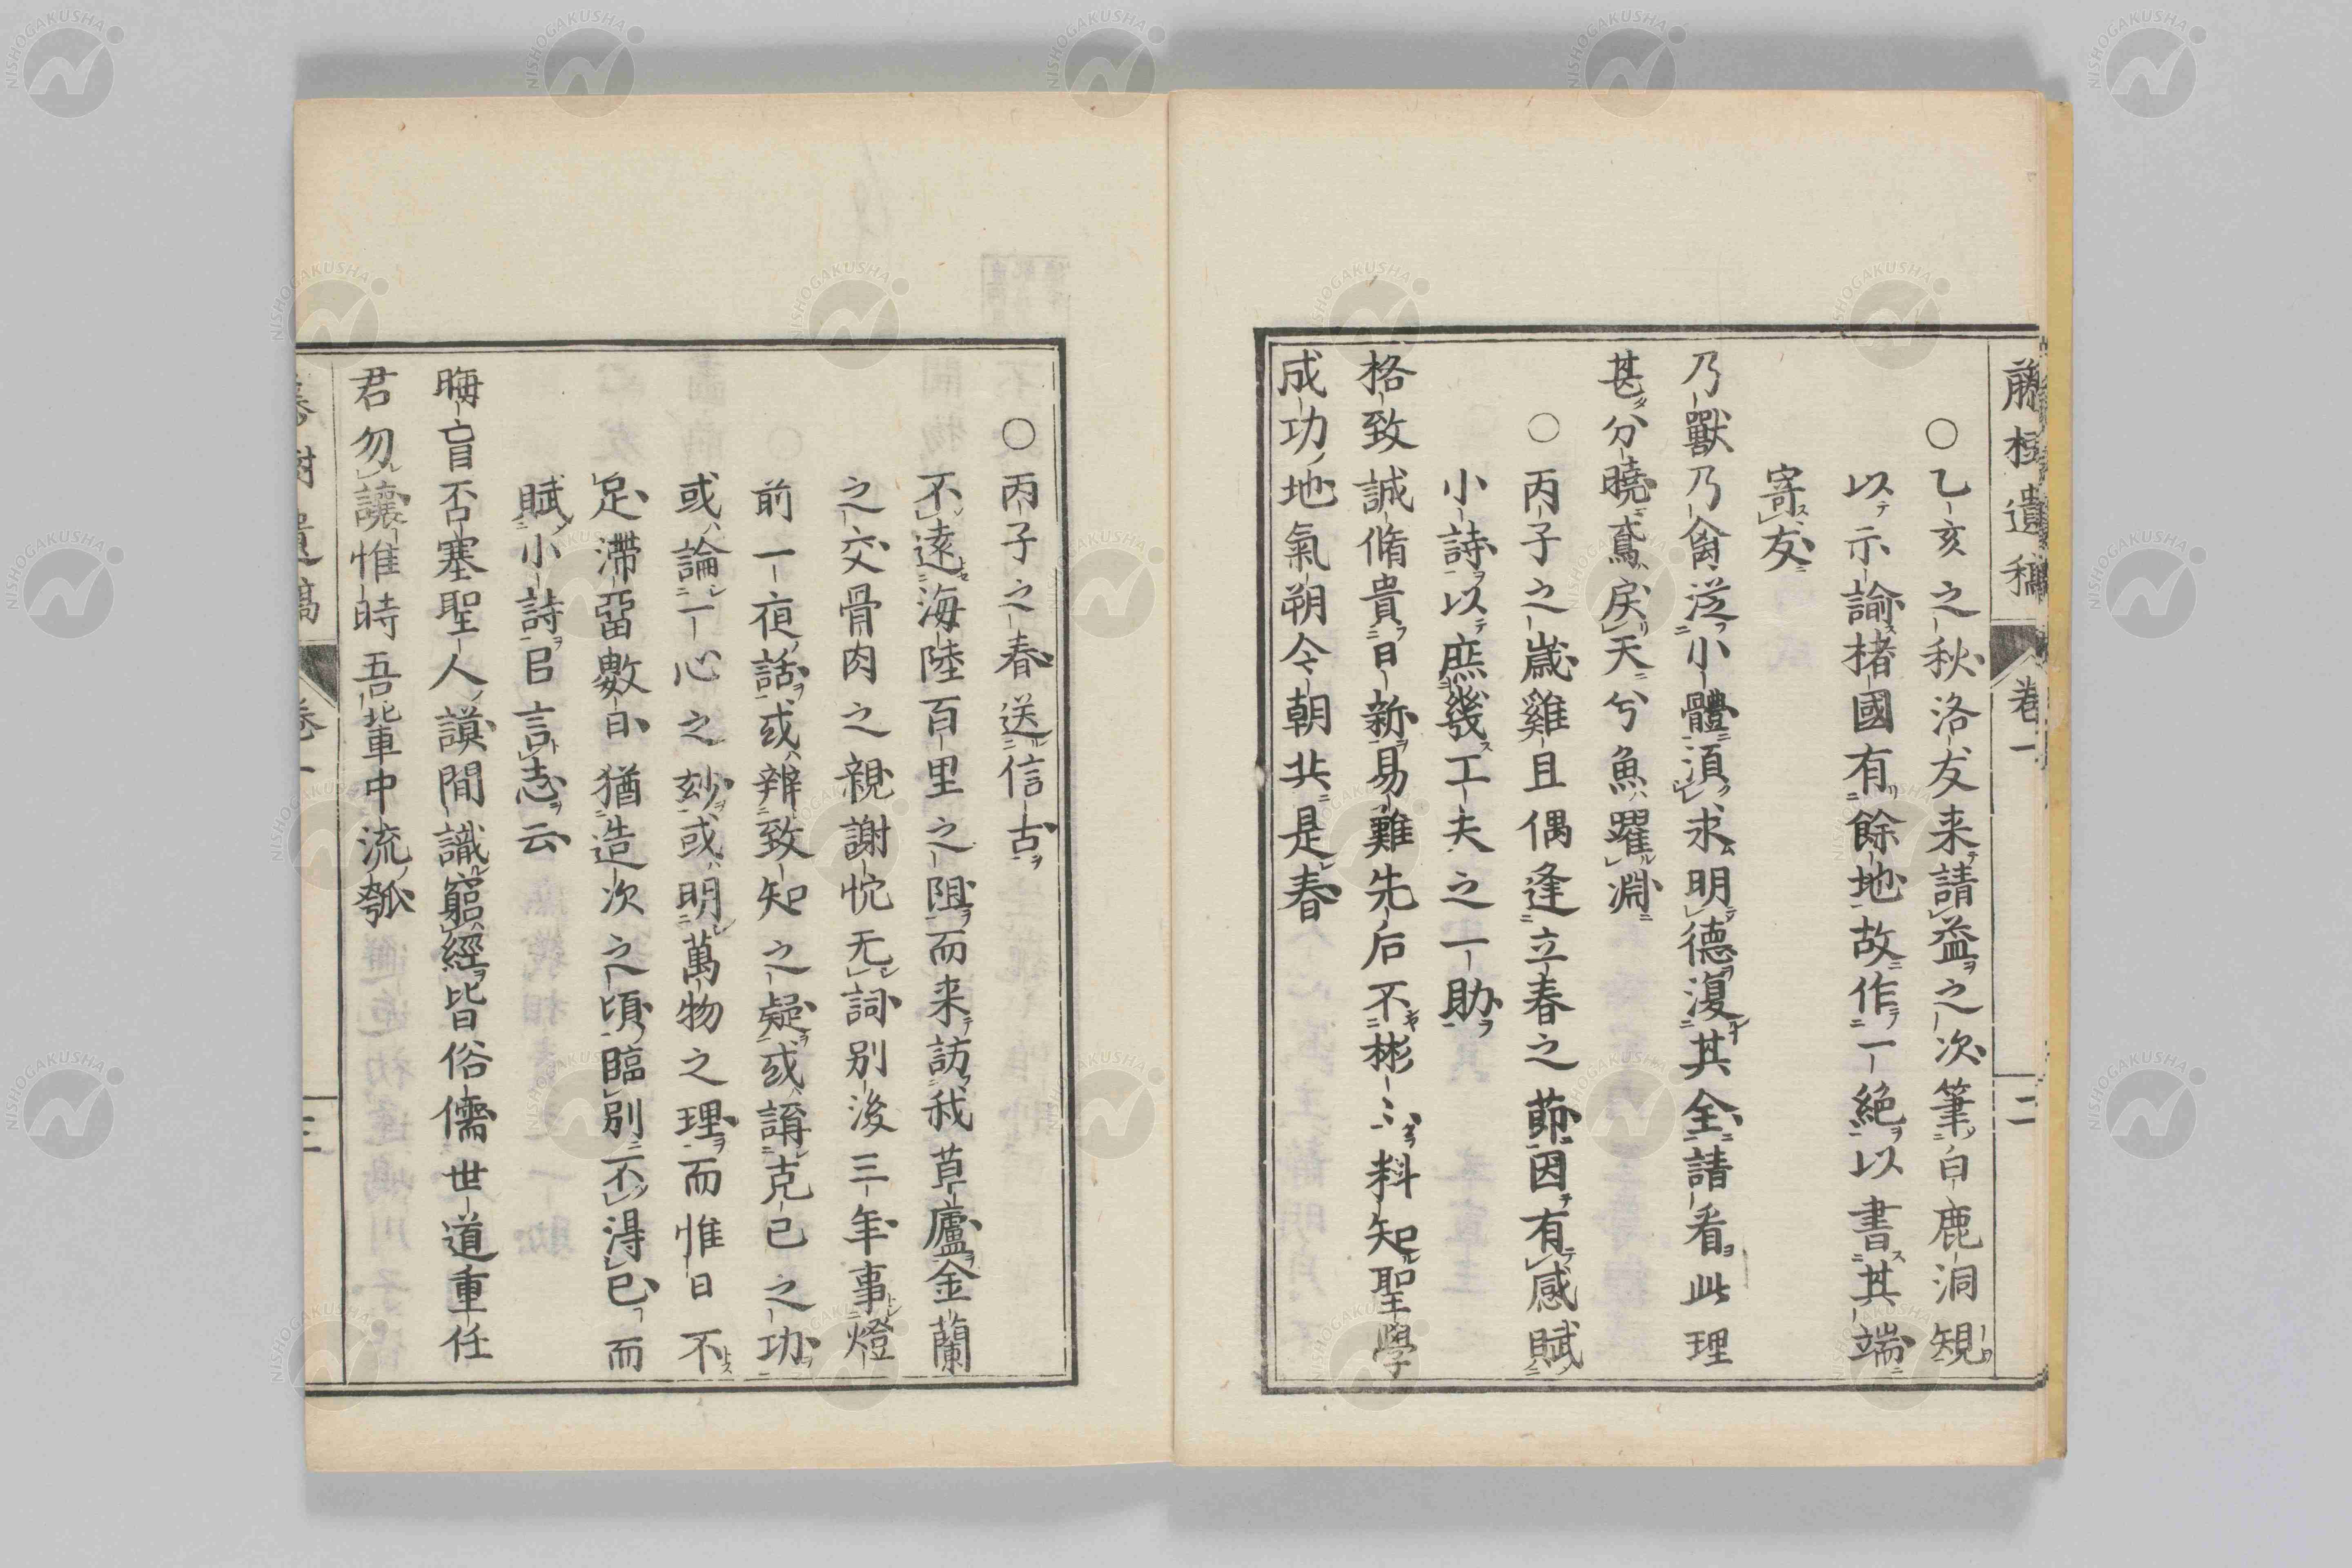 藤樹遺稿 卷一 二
○乙亥之秋洛友来請益之次筆白鹿洞規
以示諭楮國有餘地故作一絶以書其端
寄友
乃獸乃禽泛小體須求明德復其全請看此理
甚分曉鳶戾天兮魚躍淵
○丙子之歲雞且偶逢立春之節因有感賦
小詩以庶幾工夫之一助
格致誠脩貴日新易難先后不彬彬料知聖學
成功地氣朔令朝共是春
○丙子之春送信古
不遠海陸百里之阻而来訪我草廬金蘭
之交骨肉之親謝忱无詞別後三年事燈
前一夜話或辨致知之疑或講克己之功
或論一心之玅或明萬物之理而惟日不
足滯畱數日猶造次之頃臨別不得已而
賦小詩㠯言志云
晦盲否塞聖人謨間識窮經皆俗儒世道重任
君勿讓惟時吾輩中流瓠
藤樹遺稿 卷一 三
NISHOGAKUSHA